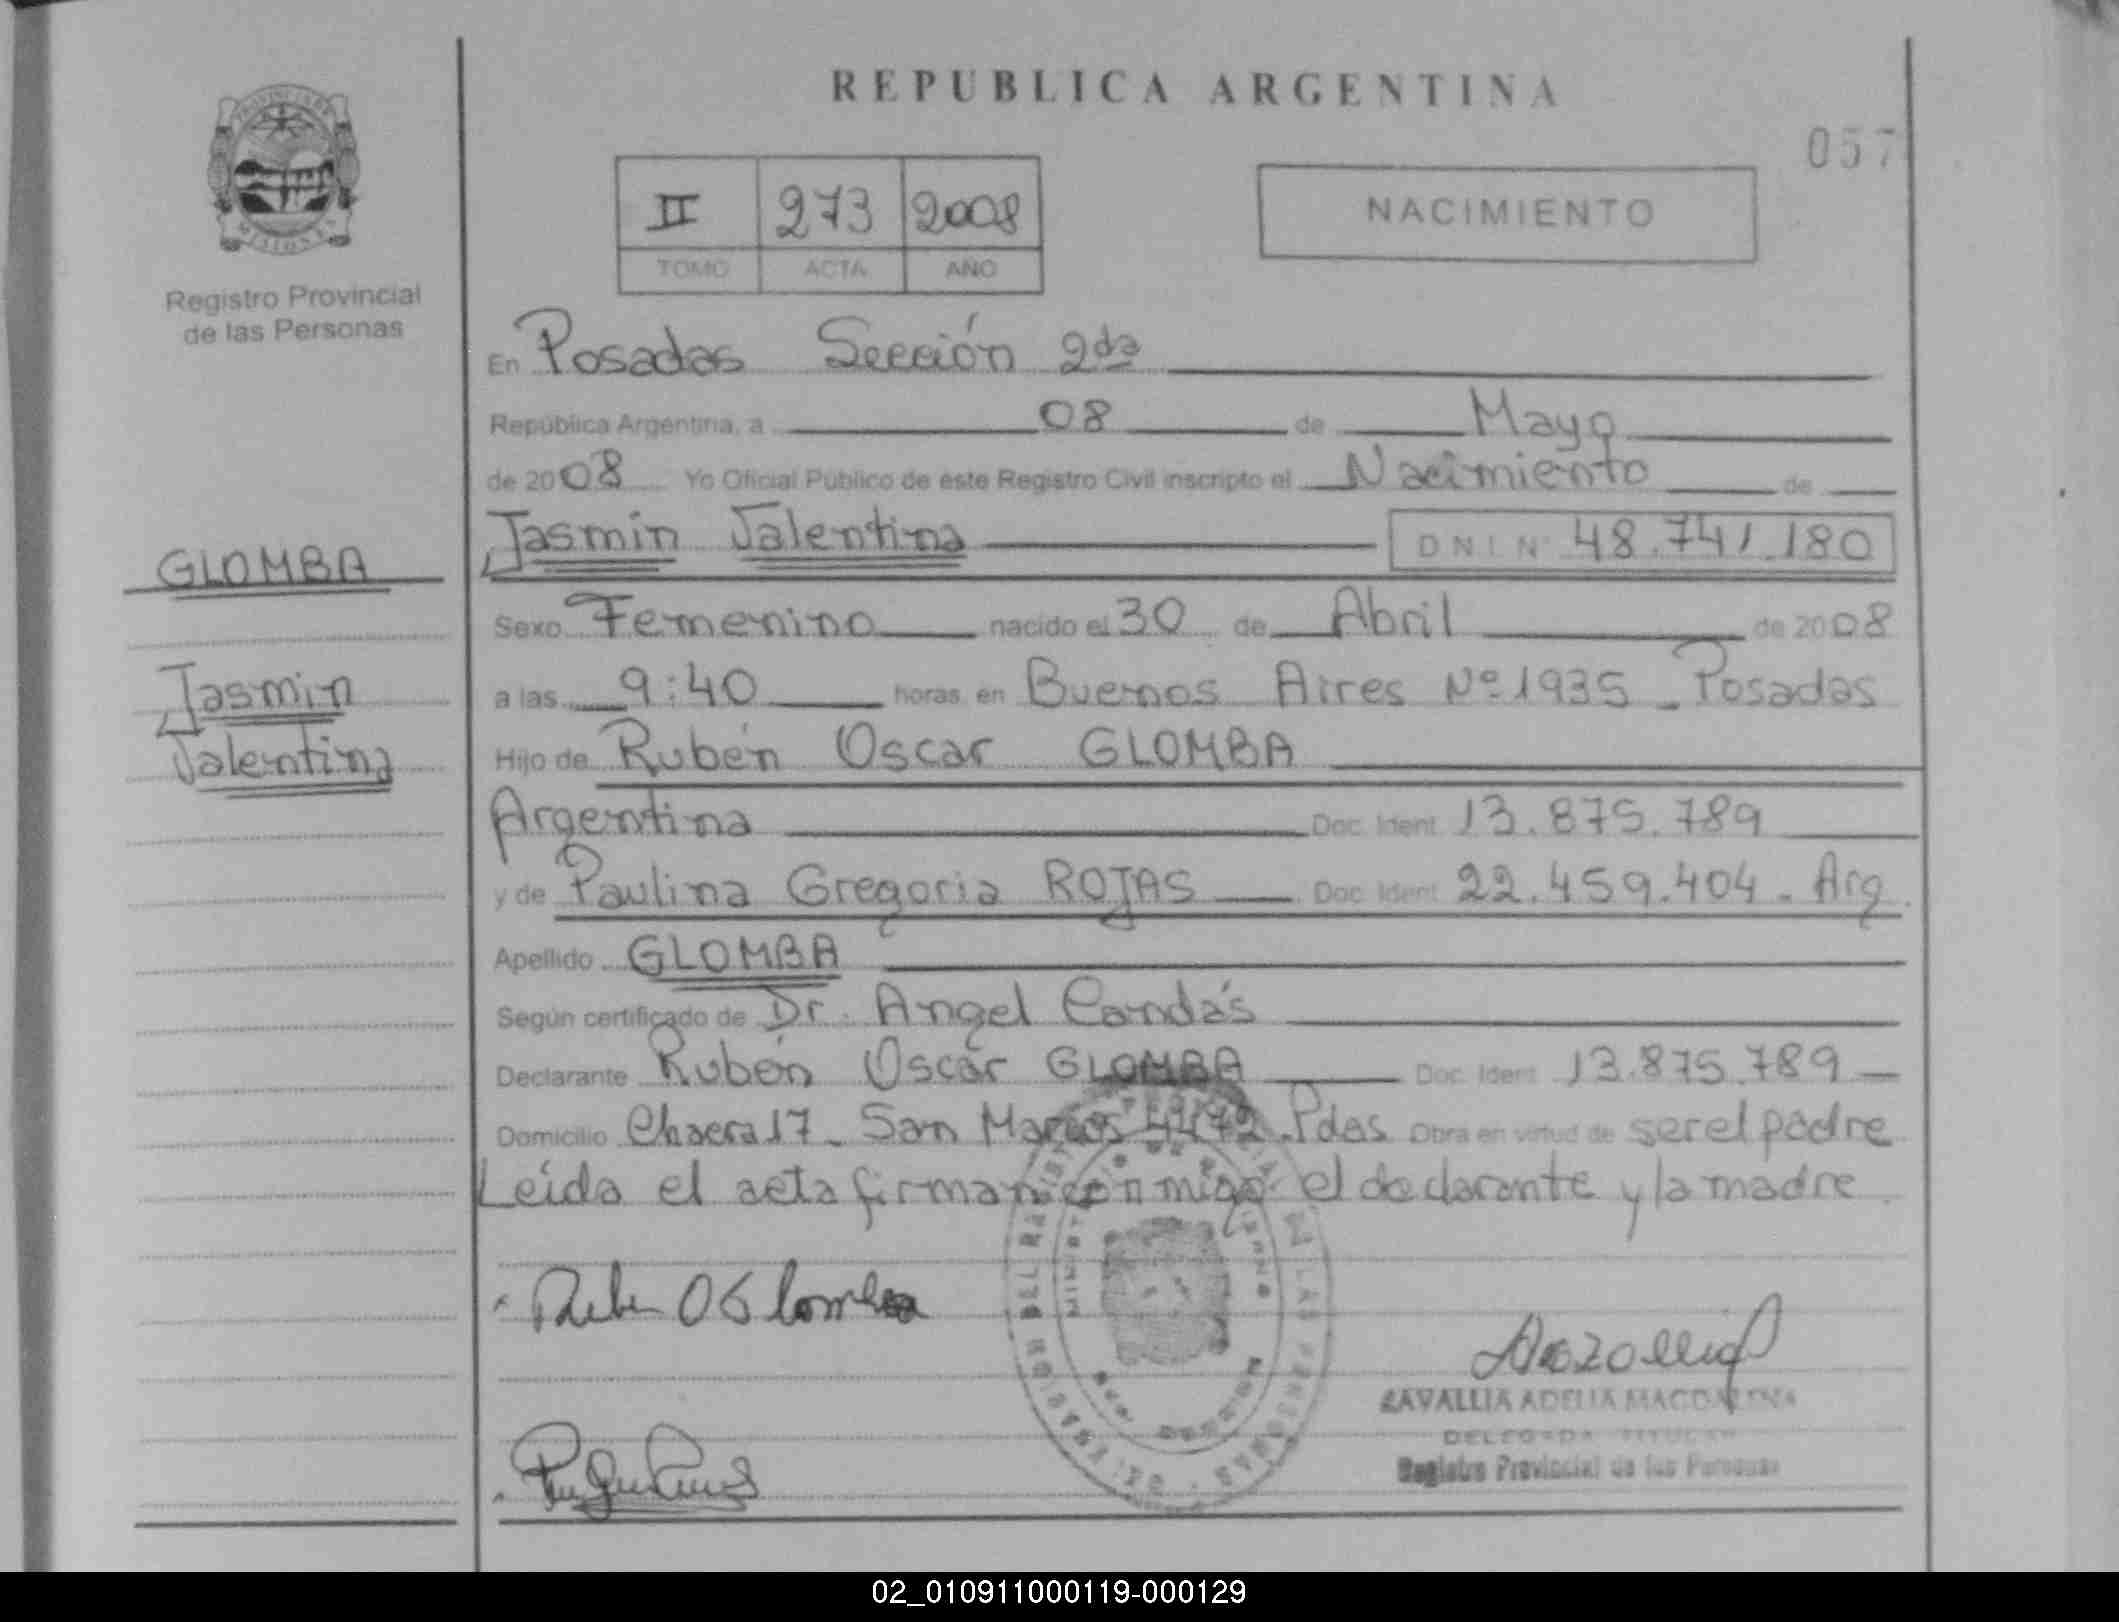 REPUBLICA ARGENTINA
057
PROVINCIA DE
MISIONES
Registro Provincial
de las Personas
II 273 2008
TOMO ACTA AÑO
NACIMIENTO
En Posadas Sección 2da
República Argentina, a 08 de Mayo
de 2008 Yo Oficial Público de este Registro Civil inscripto el Nacimiento de
GLOMBA
Jasmin Valentina DNI Nº 48.741.180
Sexo Femenino nacido el 30 de Abril de 2008
Jasmin
Valentina
a las 9:40 horas en Buenos Aires Nº 1935 - Posadas
Hijo de Rubén Oscar GLOMBA
Argentina Doc. Ident 13.875.789
y de Paulina Gregoria ROJAS Doc. Ident 22.459.404 - Arg.
Apellido GLOMBA
Según certificado de Dr. Angel Candás
Declarante Rubén Oscar GLOMBA Doc. Ident 13.875.789
Domicilio Chacra 17 - San Marcos 4472 - Pdas Obra en virtud de ser el padre
Leída el acta firman conmigo el declarante y la madre
Ruben O Glomba
ZAVALLIA ADELIA MAGDALENA
DELEGADA TITULAR
Registro Provincial de las Personas
02_010911000119-000129